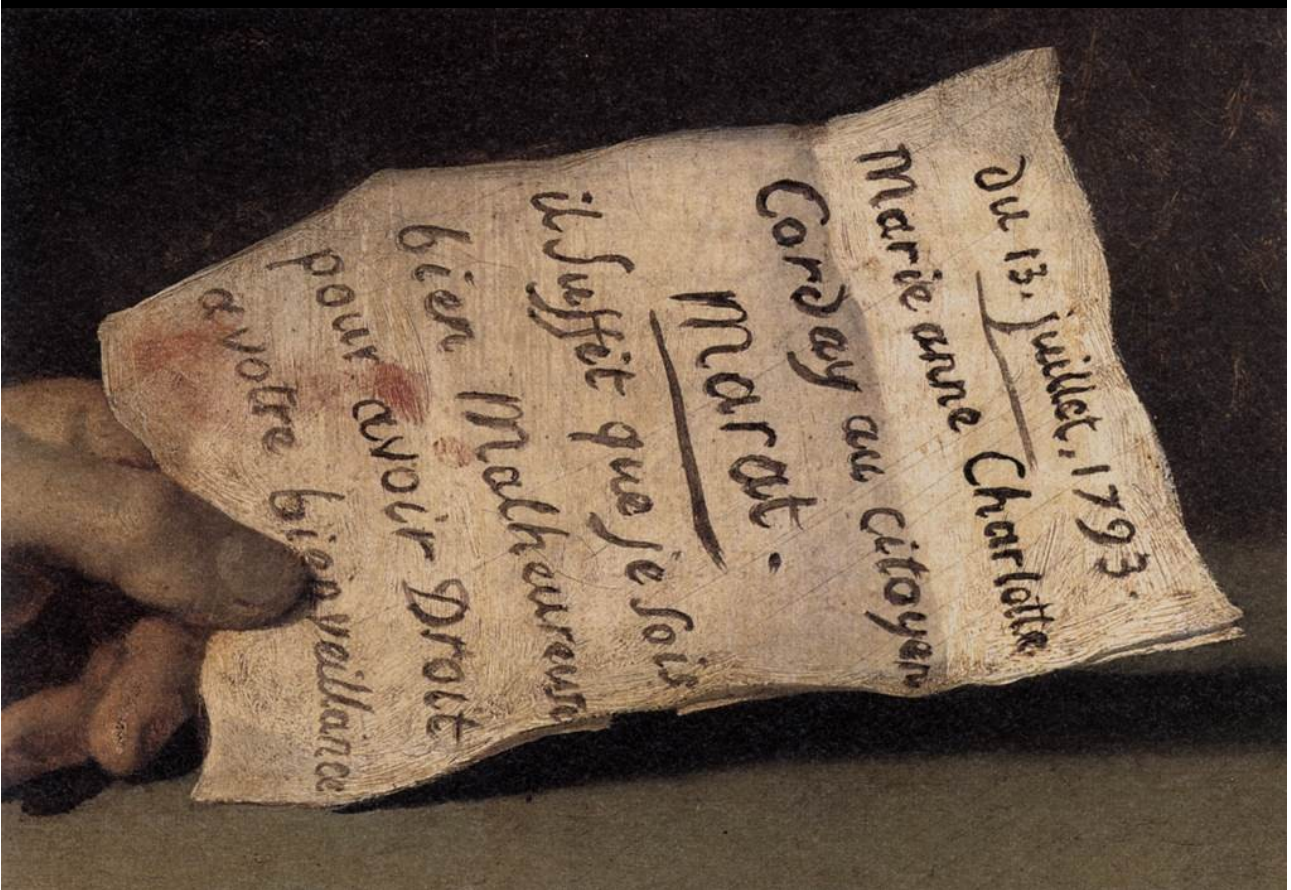 du 13. juillet, 1793.
Marie anne Charlotte
Corday au citoyen
Marat.
il suffit que je sois
bien Malheureuse
pour avoir Droit
a votre bienveillance